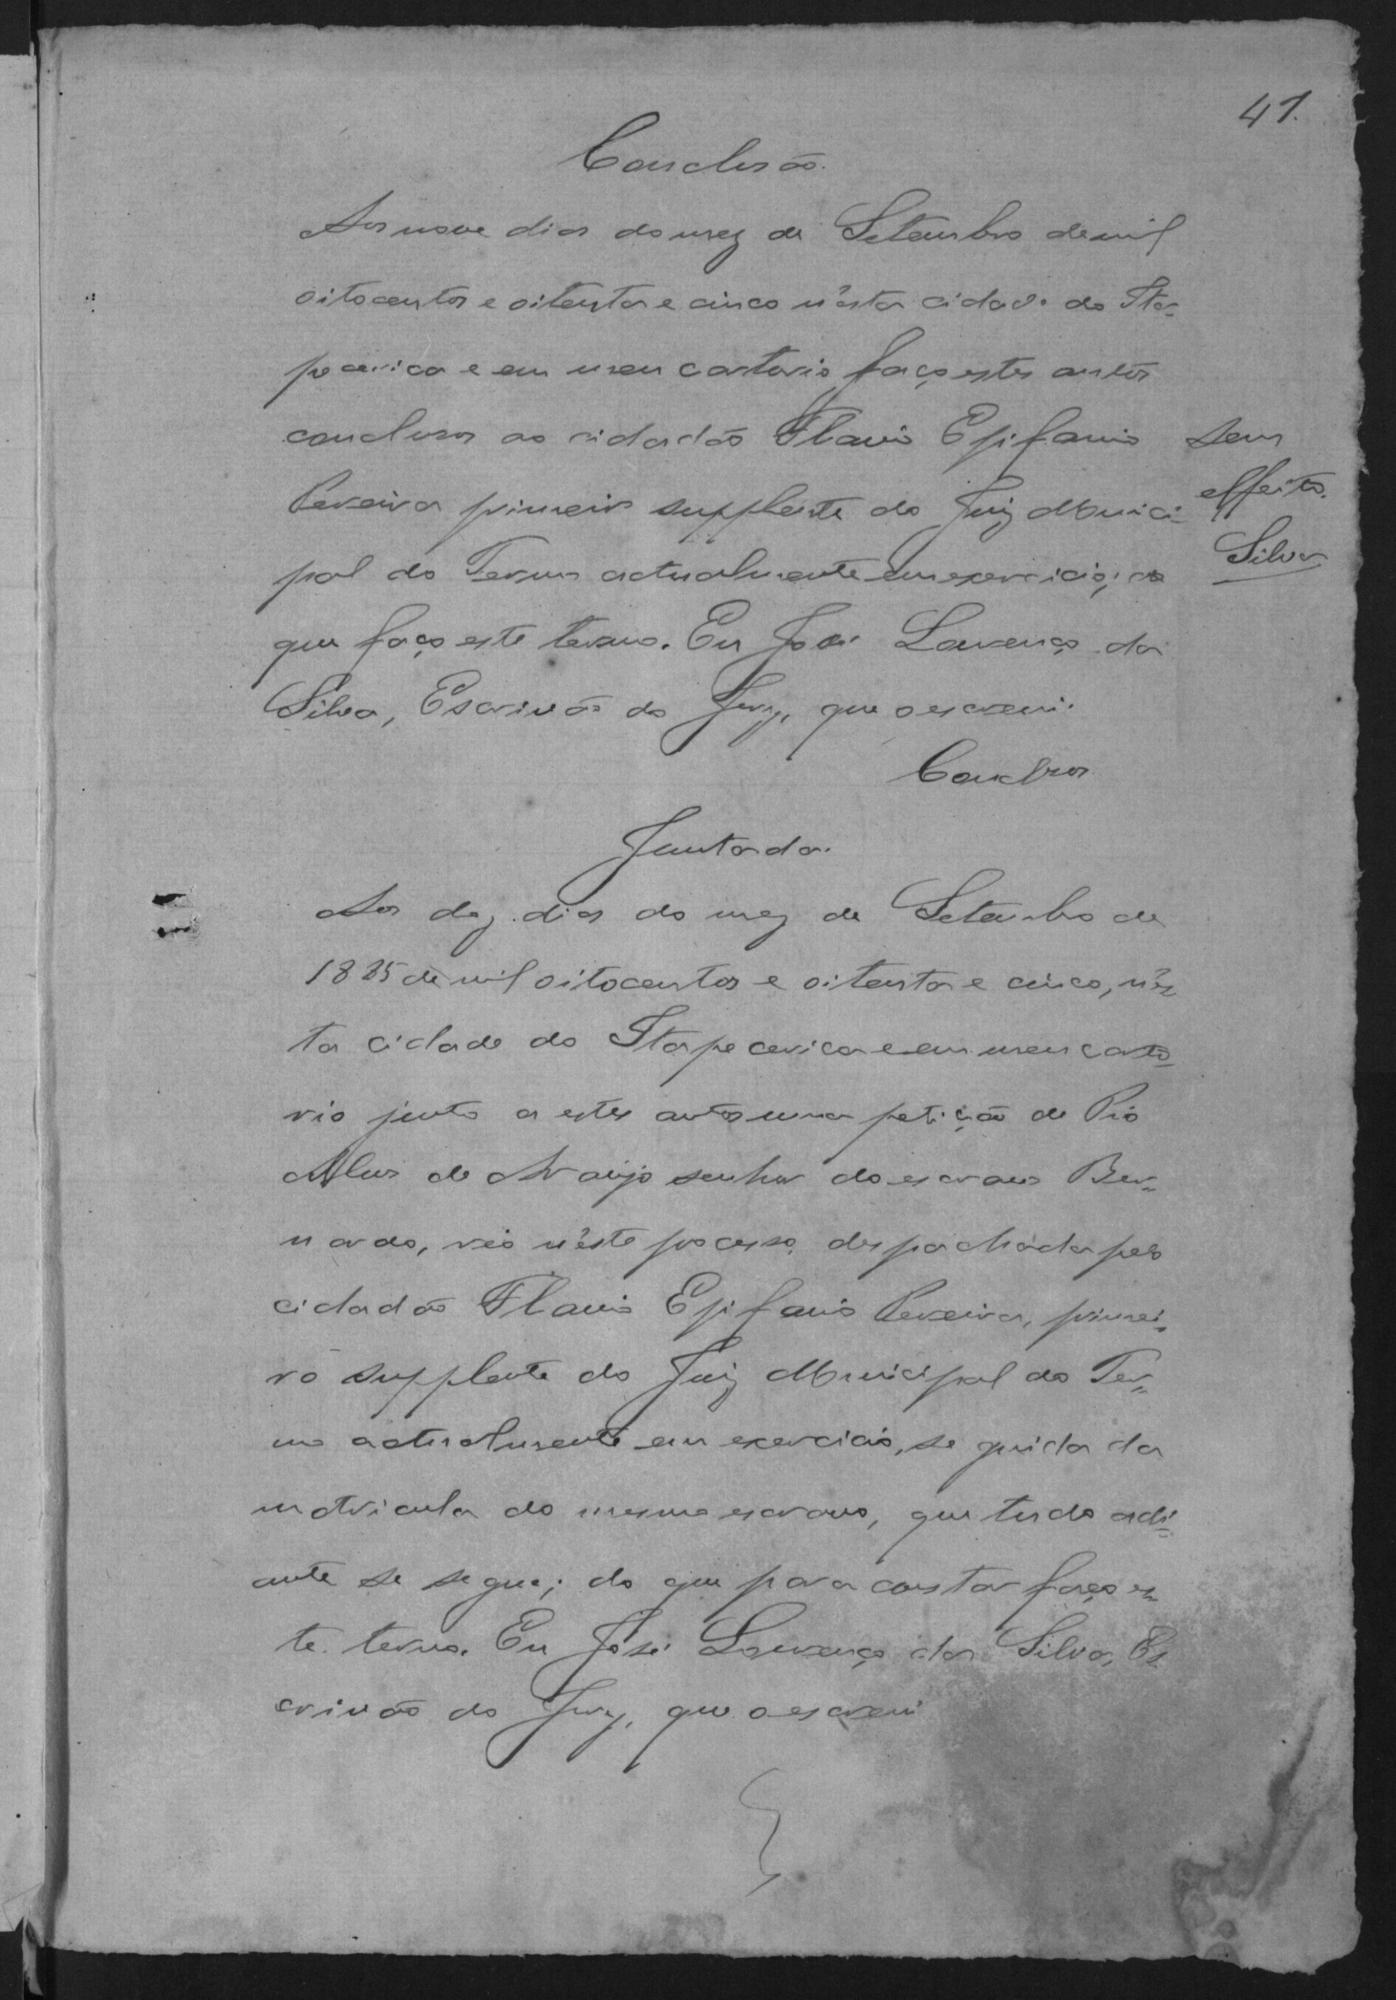 41.
Conclusão.
Aos nove dias do mez de Setembro de mil
oitocentos e oitenta e cinco n'esta cidade do Ita-
pecerica e em meu cartorio faço estes autos
conclusos ao cidadão Flavio Epifanio
Pereira primeiro supplente do Juiz Munici-
pal do Termo actualmente em exercicio; do
que faço este termo. Eu José Lourenço da
Silva, Escrivão do Jury, que o escrevi.
Conclusos
Sem
effeito.
Silva
Juntada.
Aos dez dias do mez de Setembro de
1885 de mil oitocentos e oitenta e cinco, n'es-
ta cidade do Itapecerica e em meu carto-
rio junto a estes autos uma petição de Pio
Alves de Araujo senhor do escravo Ber-
nardo, reo n'este processo, despachada pelo
cidadão Flavio Epifanio Pereira, primei-
ro supplente do Juiz Municipal do Ter-
mo actualmente em exercicio, seguida da
matricula do mesmo escravo, que tudo adi-
ante se segue; do que para constar faço es-
te termo. Eu José Lourenço da Silva, Es
crivão do Jury, que o escrevi